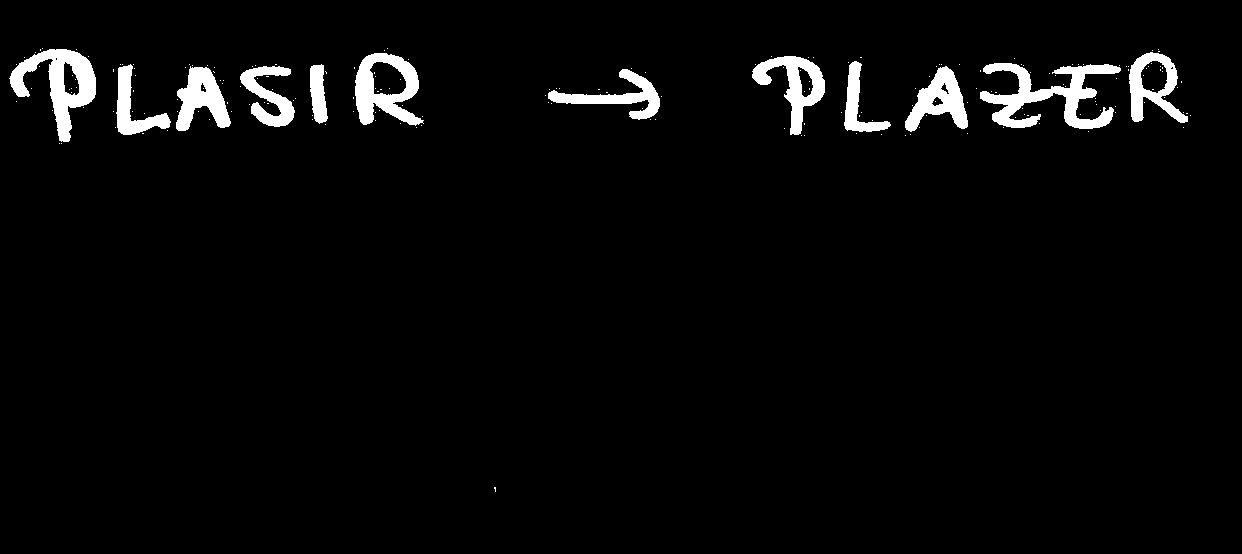 PLASIR → PLAZER